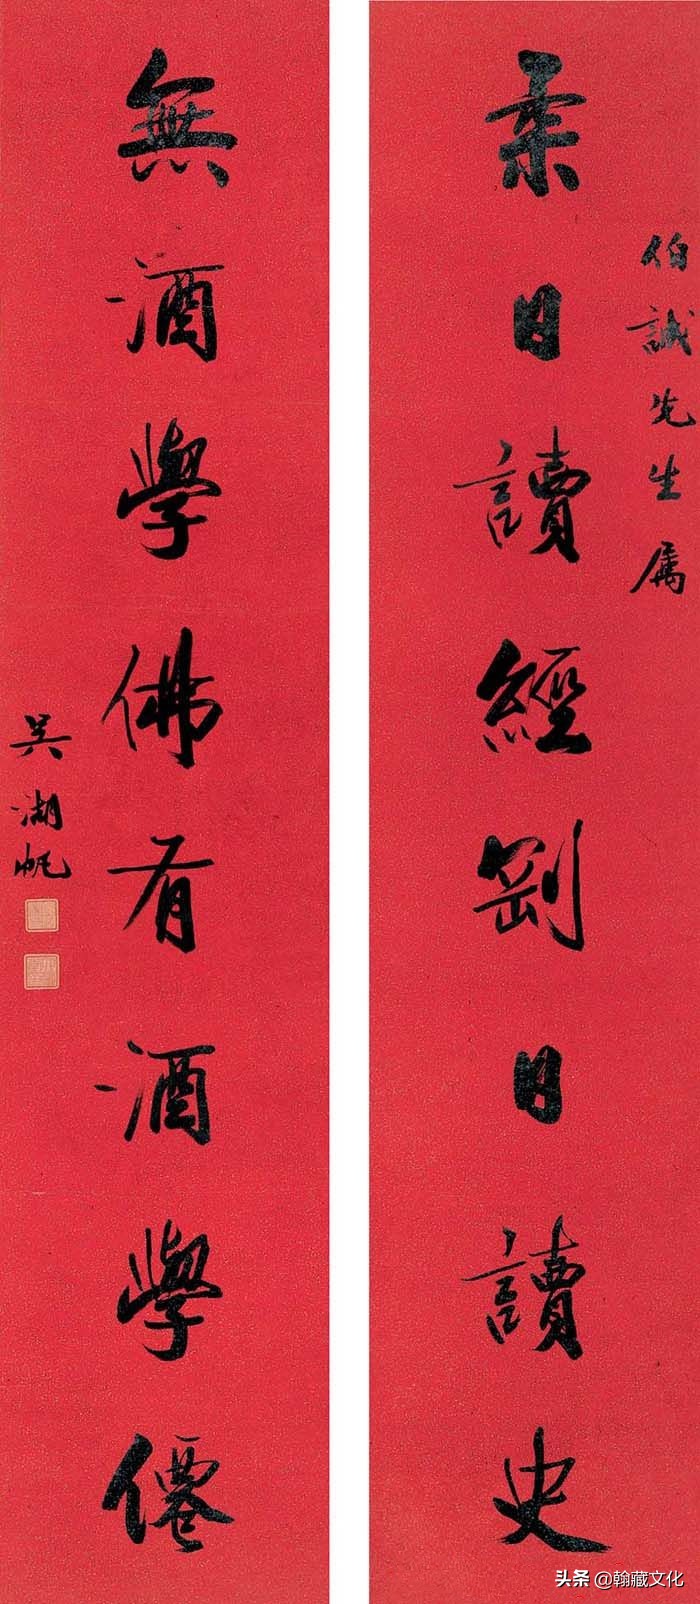 伯誠先生属
柔日讀經剛日讀史
無酒學佛有酒學僊
吳湖帆
头条 @翰藏文化